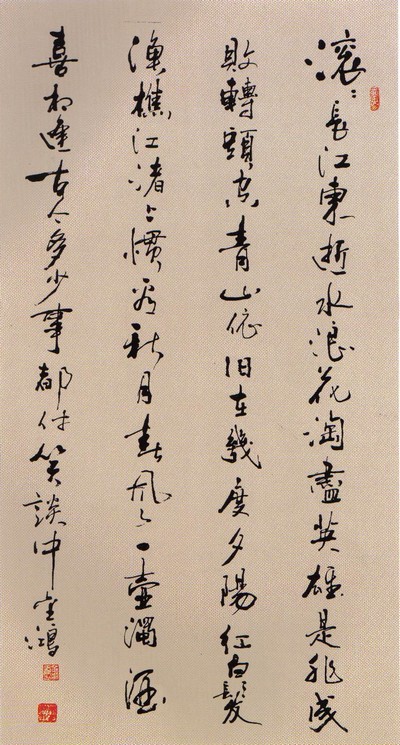 滚々長江東逝水浪花淘盡英雄是非成
敗轉頭空青山依旧在幾度夕陽紅白髮
漁樵江渚上慣看秋月春風一壺濁酒
喜相逢古今多少事都付笑談中 鴻